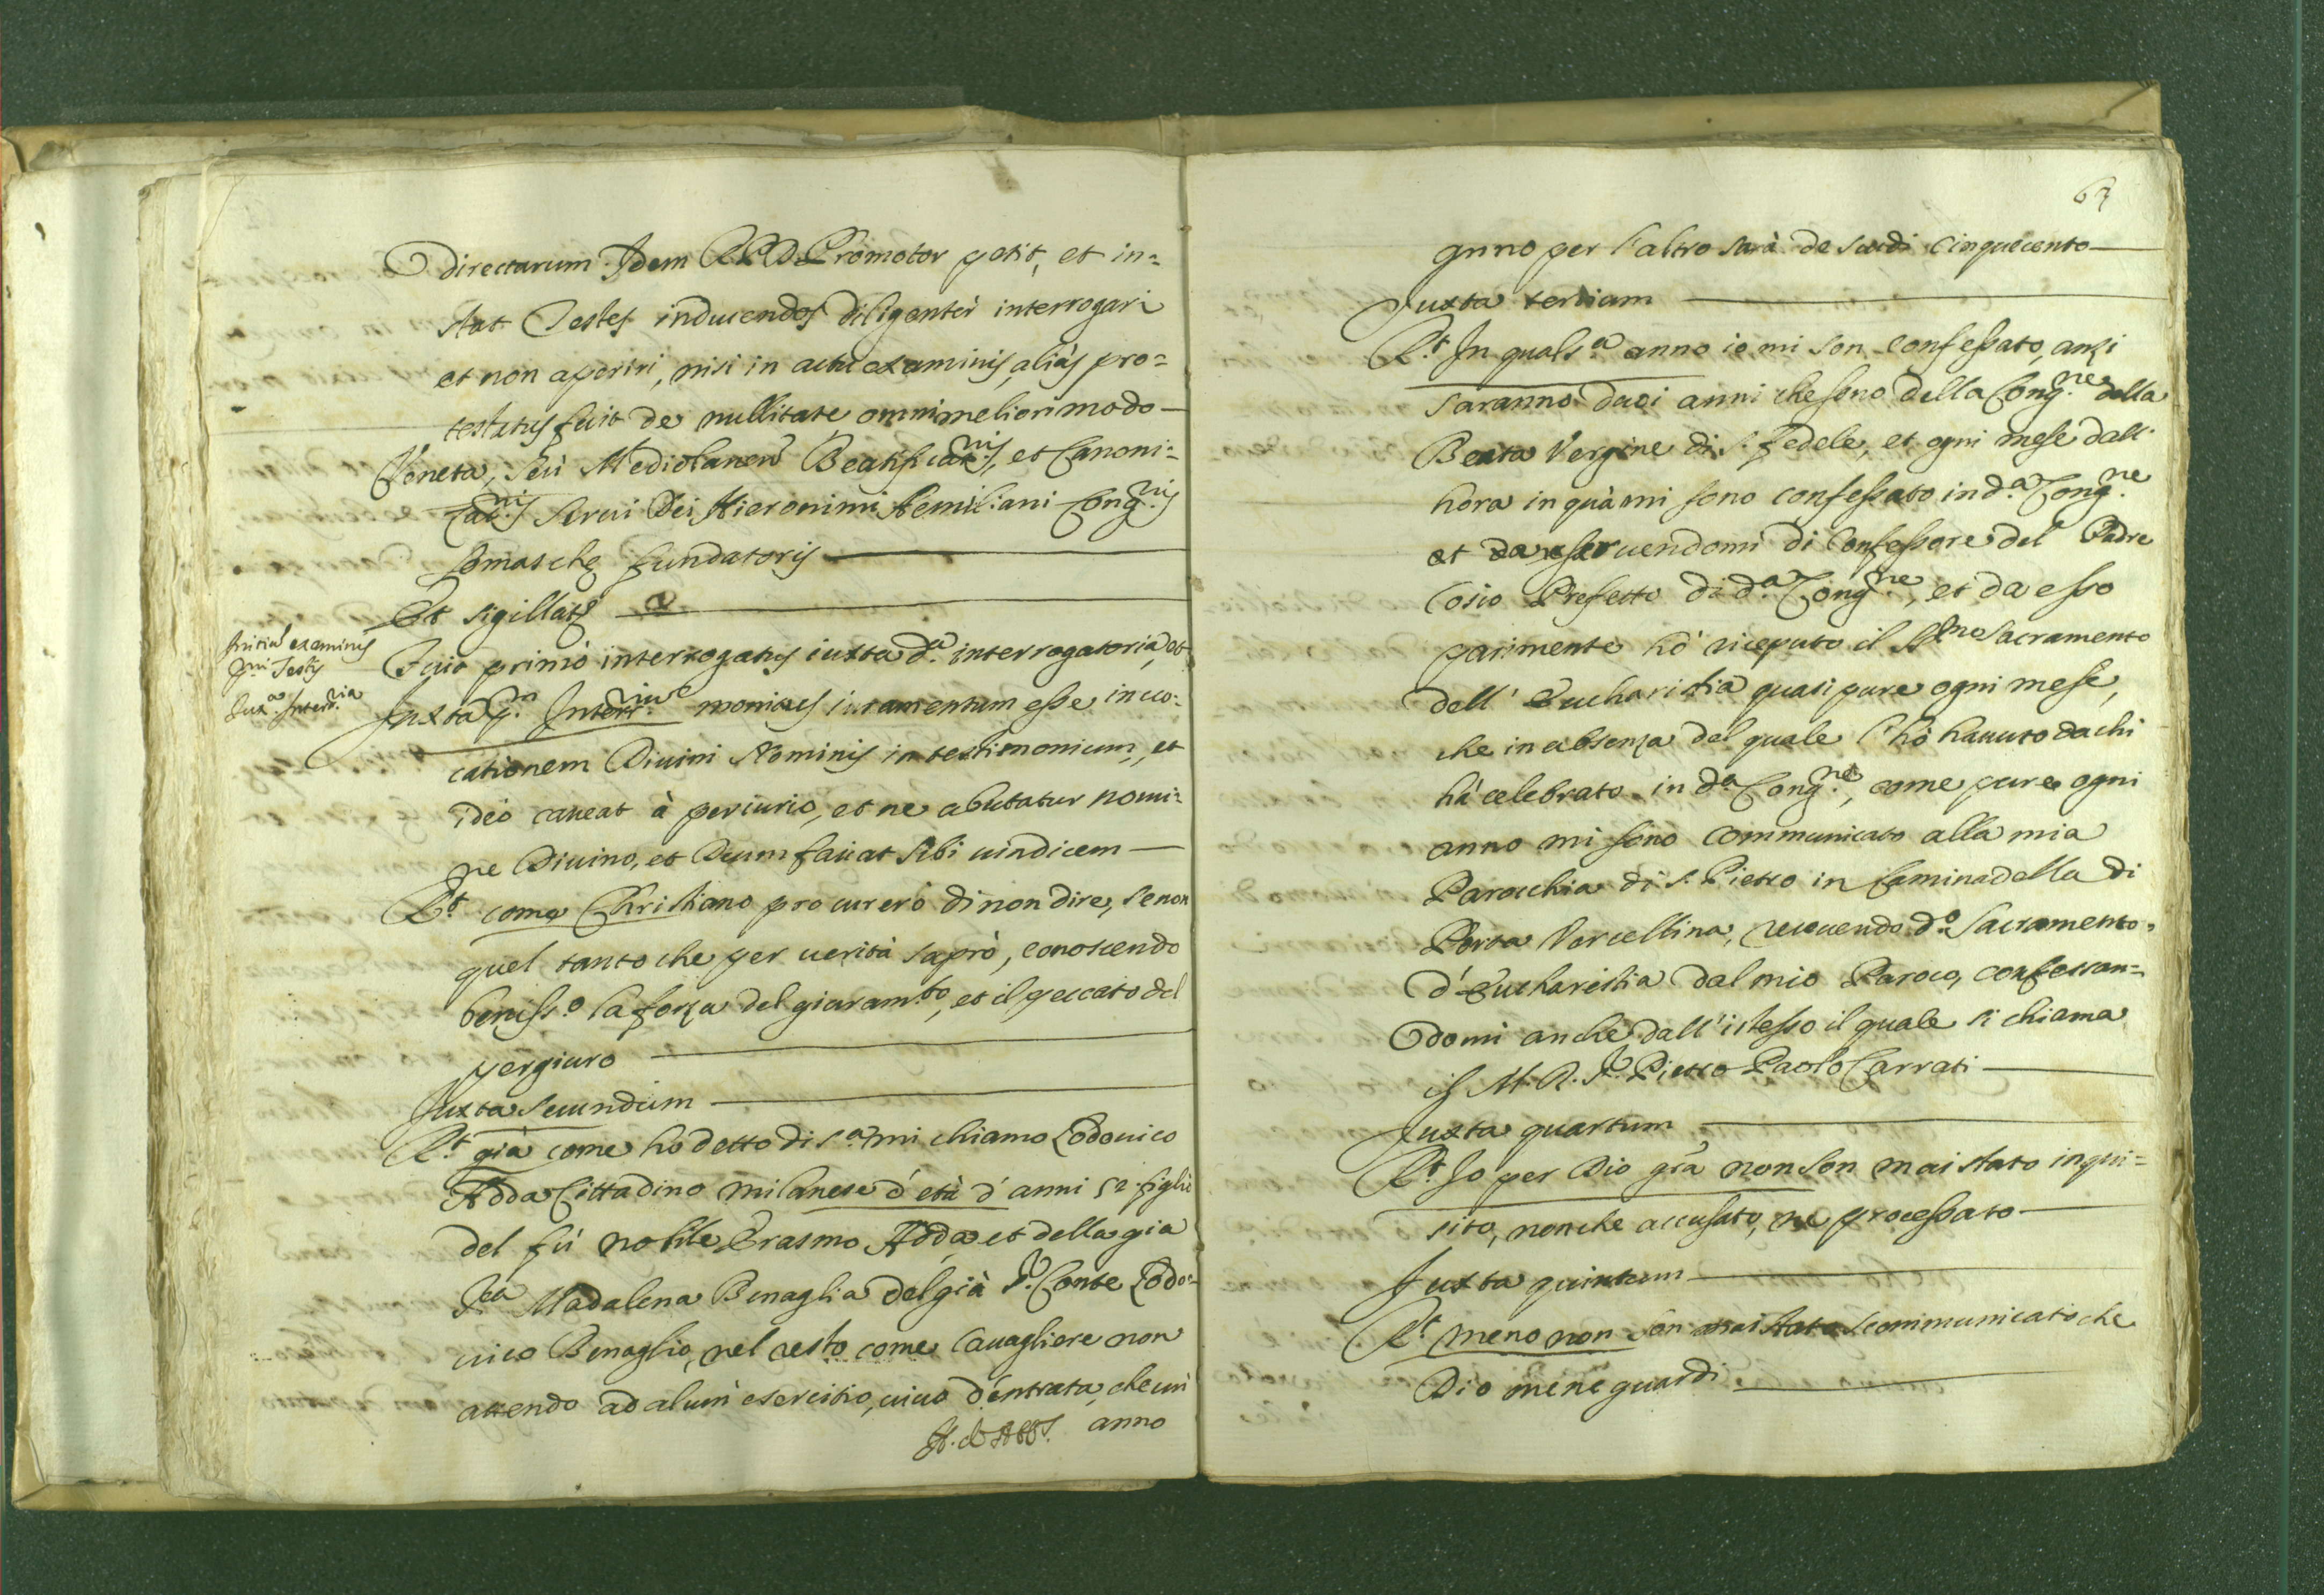 directarum Idem R.P.D. Promotor petit, et in=
stat Testes inducendos diligentèr interrogari
et non aperiri, nisi in actu examinis, aliàs pro=
testatus fuit de nullitate omni meliori modo
Veneta, seù Mediolanen Beatificat.nis, et Canoni=
zat.nis Servi Dei Hieronimi Aemiliani Cong.nis
Somaschę fundatoris
Et sigillat
Initiũ examinis
p.mi Testis
Iux.a Interr.ria
Fuit primò interrogatus iuxta d.a interrogatoria, et
Iuxta p.m Interr.rium monitus iuramentum esse inuo=
cationem Diuini Nominis in testimonium, et
ideò caueat à periurio, et ne abutatur nomi=
ne Diuino, et Deum faciat sibi uindicem
R.t come Christiano procurerò di non dire, se non
quel tanto che per uerità saprò, conoscendo
beniss.o la forza del giuram.to, et il peccato del
pergiuro
Iuxta secundum
R.t già come ho detto di s.a mi chiamo Lodouico
Adda Cittadino milanese d'età d'anni 52 figlio
del fù nobile Erasmo Adda, et della gia
S.ra Madalena Benaglia del già S.r Conte Lodo=
uico Benaglio, nel resto come Cauagliere non
attendo ad alcun esercitio, uiuo d'entrata, che un
anno
63
anno per l'altro sarà de scudi cinquecento
Iuxta tertium
R.t In quals.a anno io mi son confessato, anzi
saranno dieci anni che sono della Cong.ne della
Beata Vergine di S. Fedele, et ogni mese dall'
hora in quà mi sono confessato in d.a Cong.ne
et seruendomi di Confessore del Padre
Cosio Prefetto di d.a Cong.ne, et da esso
parimente hò riceputo il SS.mo Sacramento
dell' Eucharistia quasi pure ogni mese,
che in absenza del quale l'hò hauuto da chi
hà celebrato in d.a Cong.ne, come pure ogni
anno mi sono communicato alla mia
Parocchia di S. Pietro in Caminadella di
Porta Vercellina, riceuendo d.o Sacramento
d'Eucharistia dal mio Paroco, confessan=
domi anche dall'istesso il quale si chiama
il M. R. S.r Pietro Paolo Carrati
Iuxta quartum
R.t Io per Dio grã non son mai stato inqui=
sito, non che accusato, ne processato
Iuxta quintum
R.t meno non son mai stato scommunicato che
Dio mene guardi